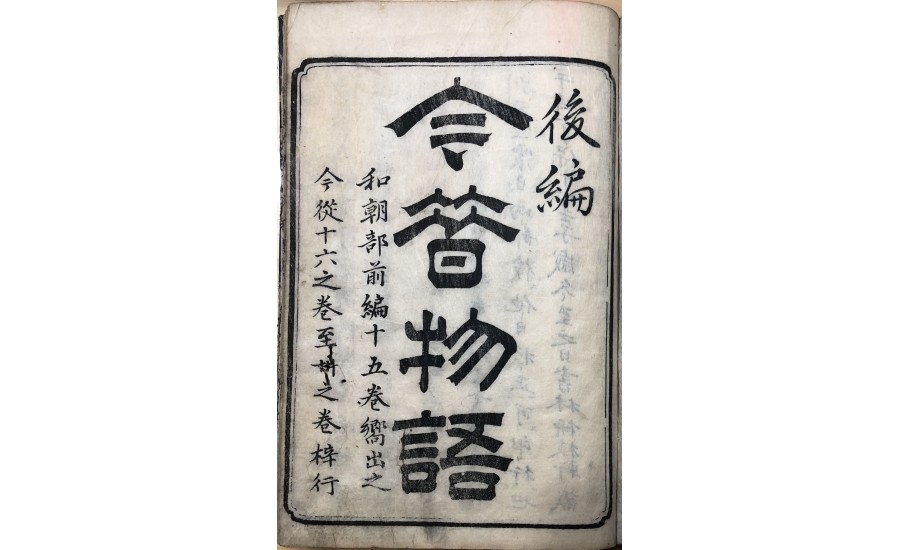 後編
今昔物語
和朝部前編十五卷嚮出之
今從十六之卷至卅之卷梓行